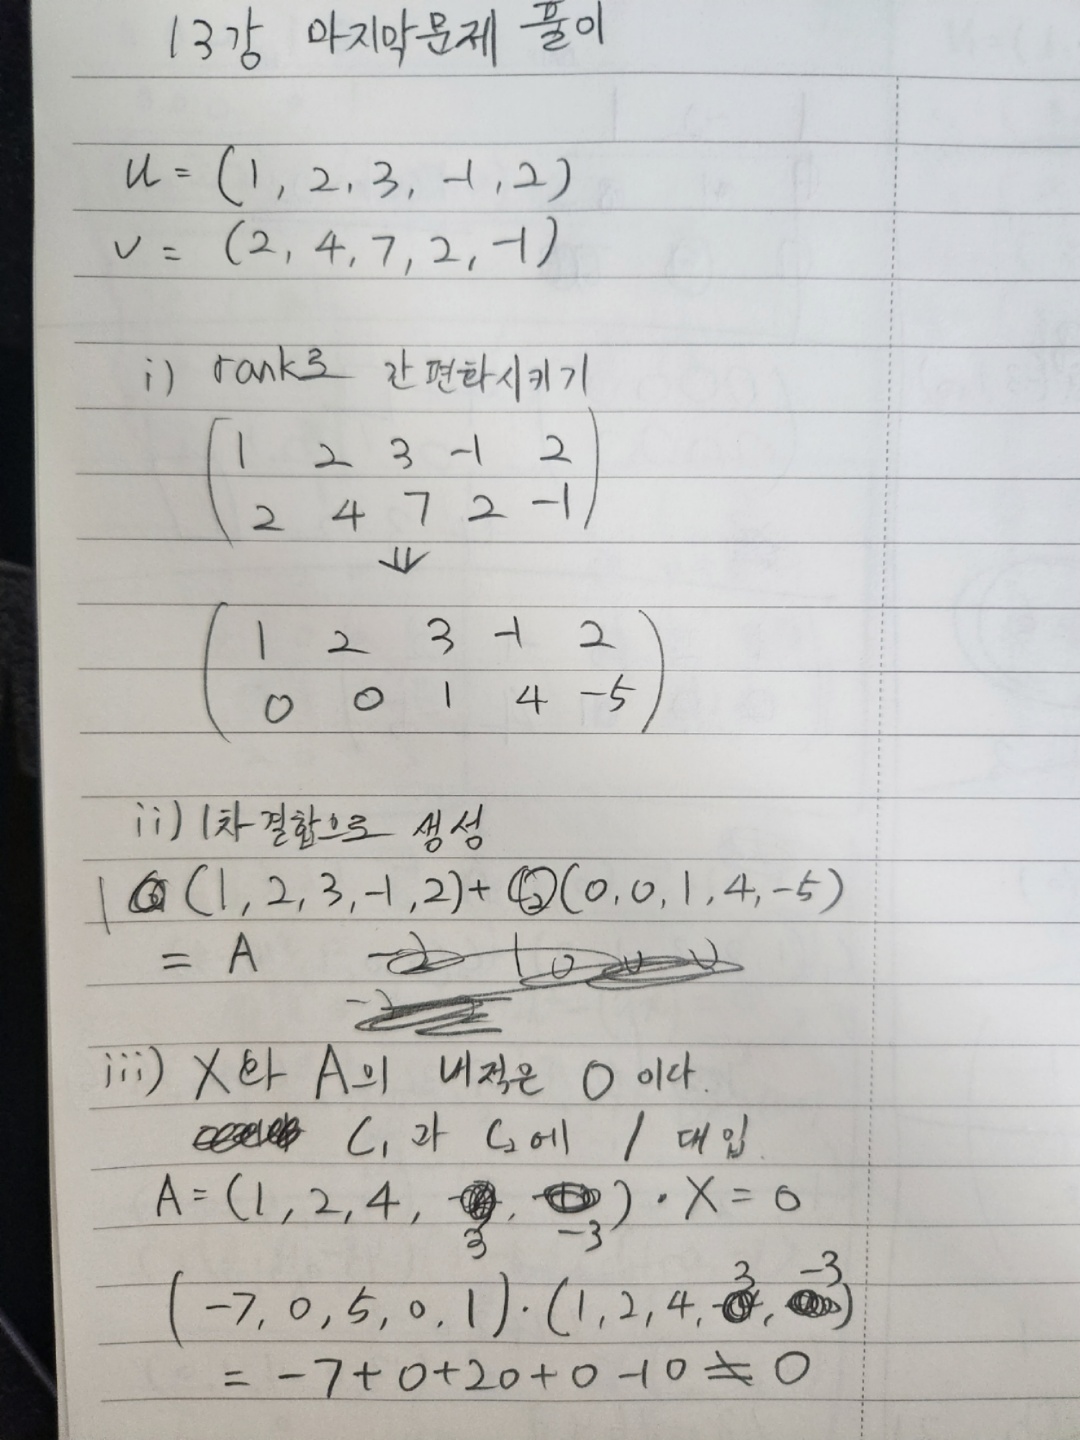 13강 마지막문제 풀이
u = (1, 2, 3, -1, 2)
v = (2, 4, 7, 2, -1)
i) rank로 간편화시키기
1 2 3 -1 2
2 4 7 2 -1
⇓
1 2 3 -1 2
0 0 1 4 -5
ii) 1차결합으로 생성
(1, 2, 3, -1, 2) + C₂(0, 0, 1, 4, -5)
= A
iii) X와 A의 내적은 0 이다.
C₁과 C₂에 1 대입.
A = (1, 2, 4, 3, -3) · X = 0
(-7, 0, 5, 0, 1) · (1, 2, 4, 3, -3)
= -7 + 0 + 20 + 0 - 10 ≠ 0